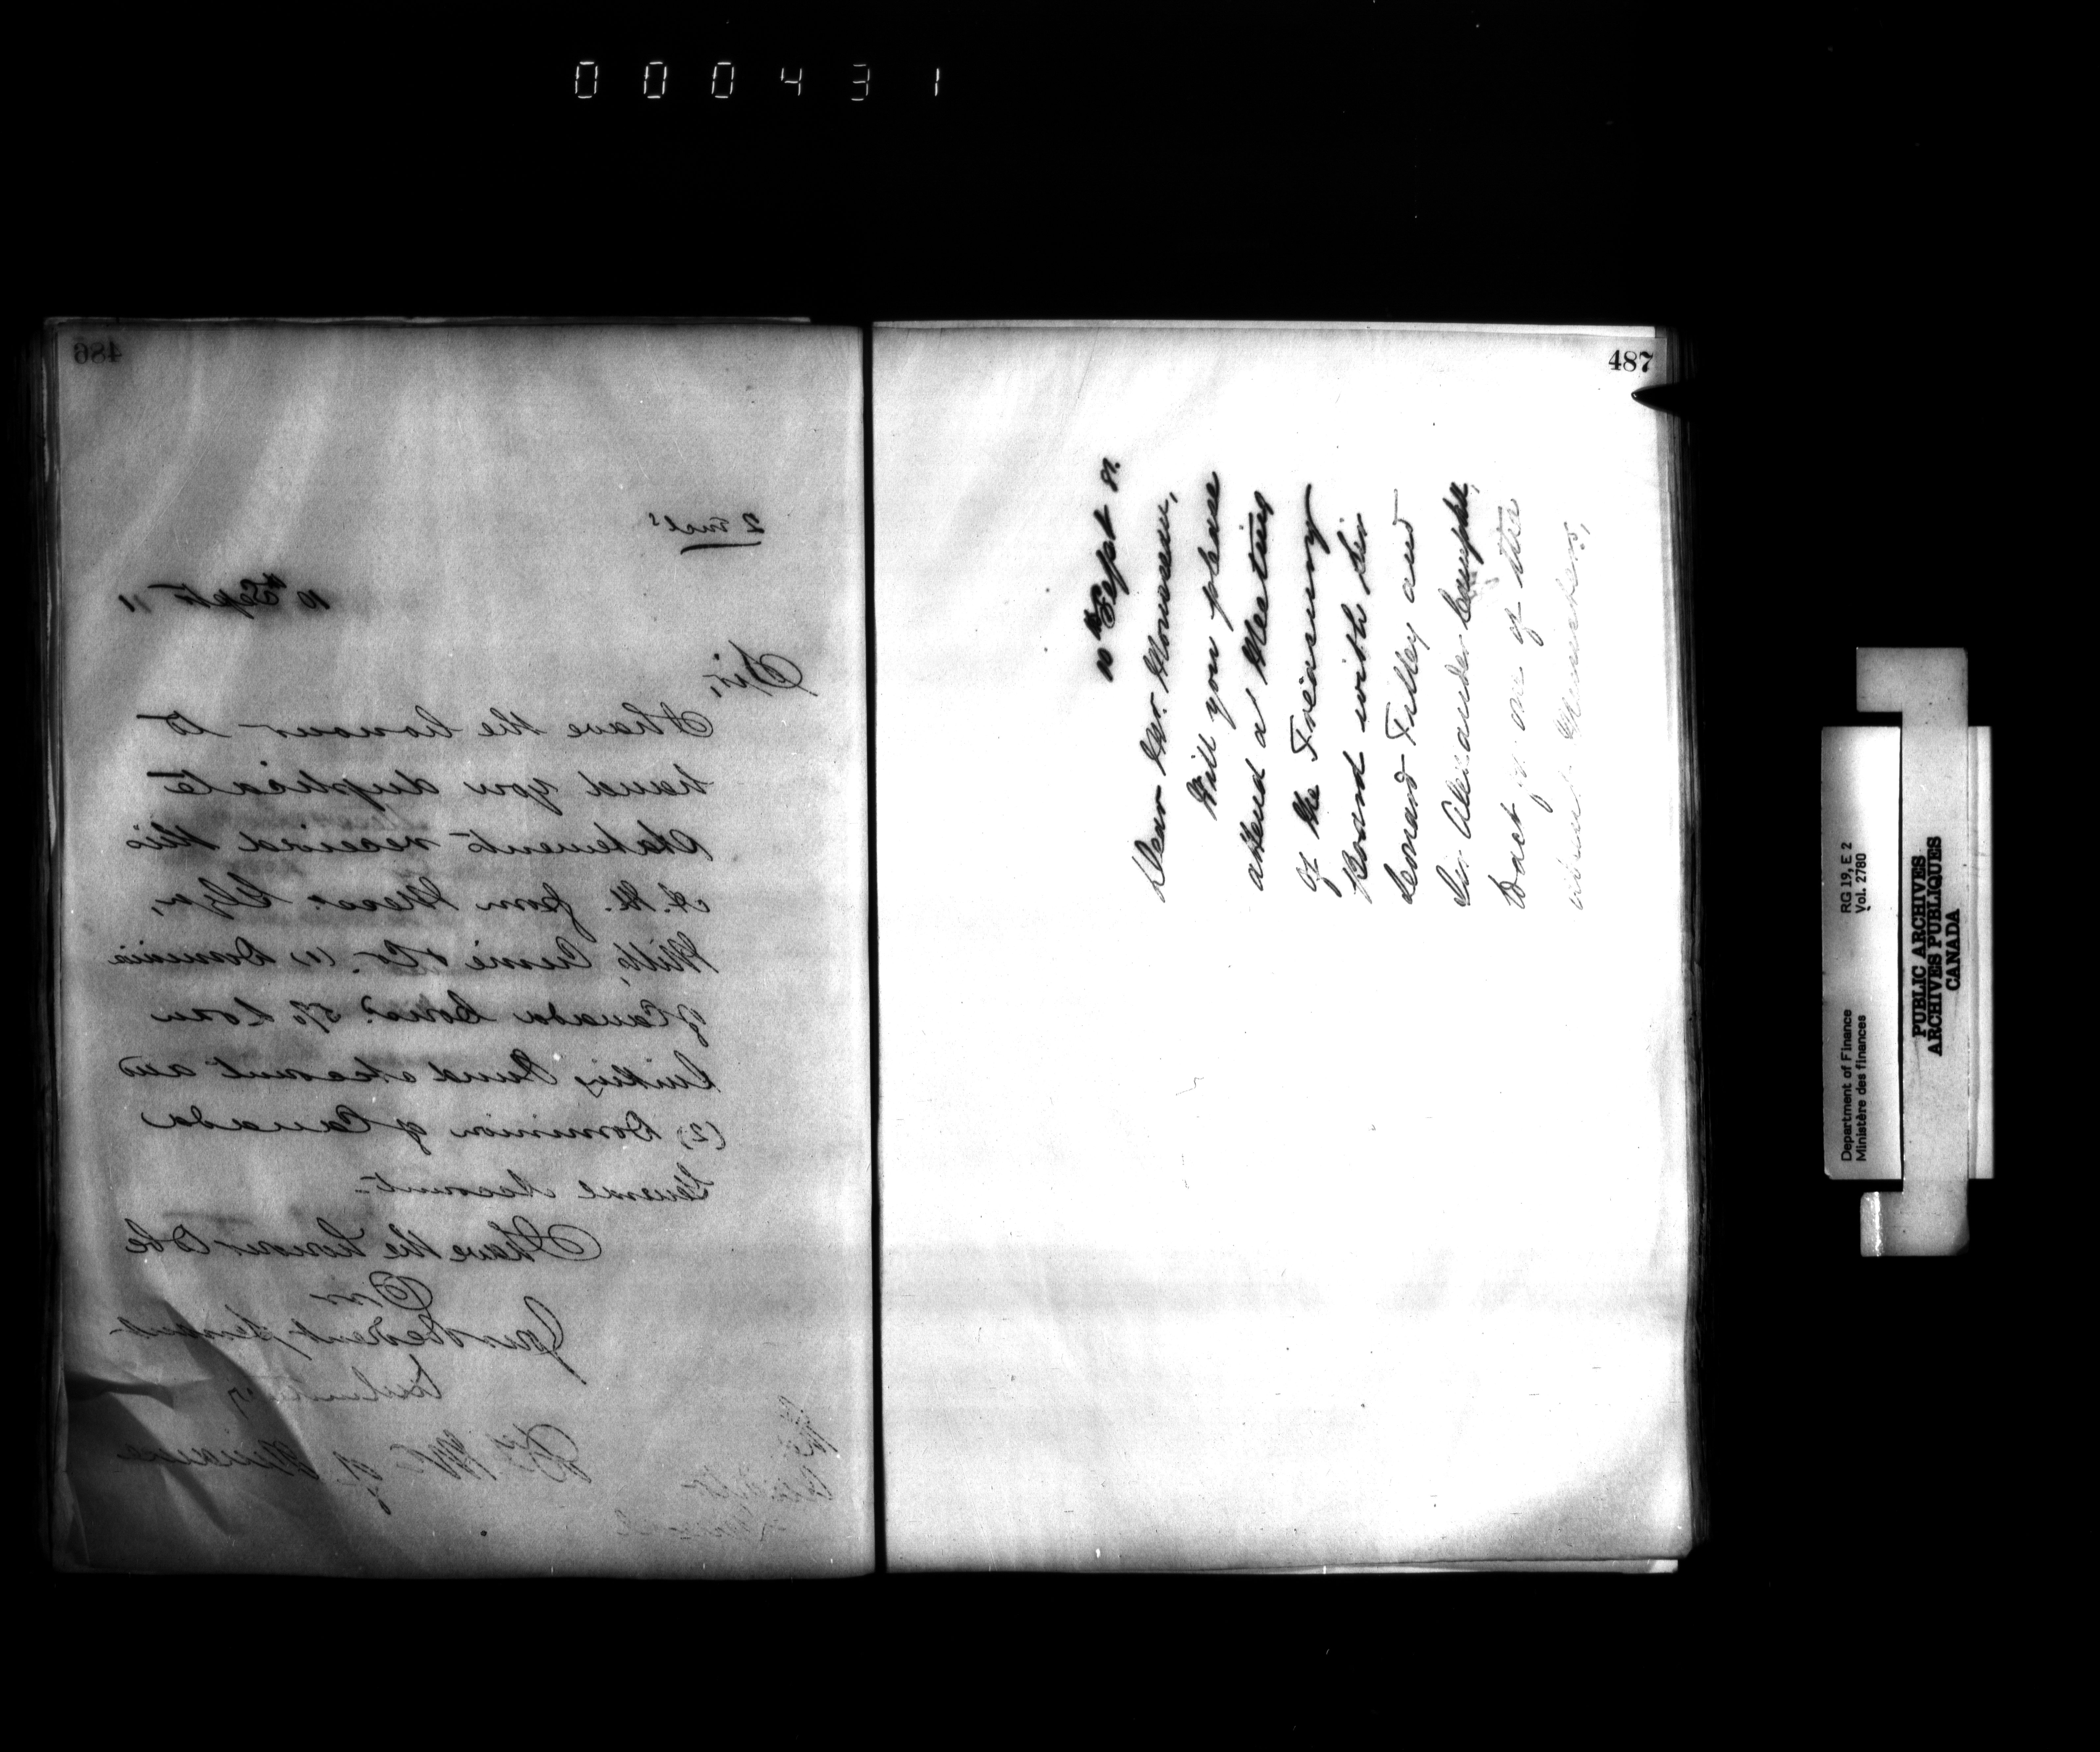 000431
486
2 encls
10th Sept
Sir,
I have the honour to
hand you duplicate
Statements received this
A.M. from Messr. Glyn,
Mills, Currie & Co. (1) Dominion
of Canada 5% Loan
Sinking Fund Account and
(2) Dominion of Canada
Account.
I have the honour to be
Sir
Your Obedient Servant
487
10th Sept 81.
Dear Mr. Mousseau,
Will you please
attend a Meeting
of the Treasury
Board with Sir
Leonard Tilley and
Sir Alexander Campbell,
for one of the
Members,
Department of Finance
Ministère des finances
RG 19, E 2
Vol. 2780
PUBLIC ARCHIVES
ARCHIVES PUBLIQUES
CANADA